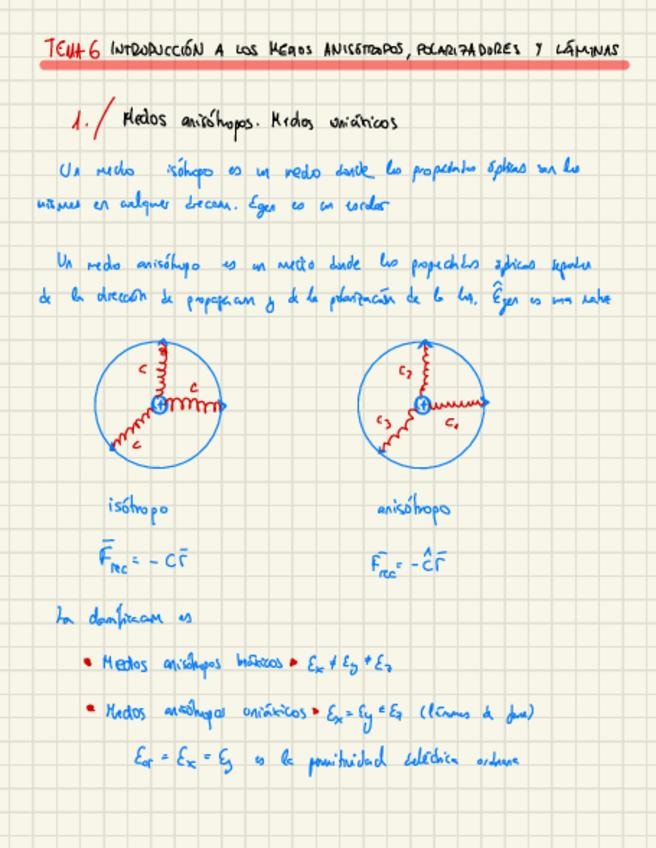 TEMA 6 INTRODUCCIÓN A LOS MEDIOS ANISÓTROPOS, POLARIZADORES Y LÁMINAS
1./ Medios anisótropos. Medios uniáxicos
Un medio isótropo es un medio donde las propiedades ópticas son las
mismas en cualquier dirección. Êgen es un escalar
Un medio anisótropo es un medio donde las propiedades ópticas dependen
de la dirección de propagación y de la polarización de la luz. Êgen es una matriz
C C C
C₂ C₃ C₁
isótropo anisótropo
F̄rec = - C r̄ F̄rec = - Ĉ r̄
La clasificación es
• Medios anisótropos biáxicos • Ɛx ≠ Ɛy ≠ Ɛz
• Medios anisótropos uniáxicos • Ɛx = Ɛy ≠ Ɛz (láminas de fase)
Ɛor = Ɛx = Ɛy es la permitividad dieléctrica ordinaria